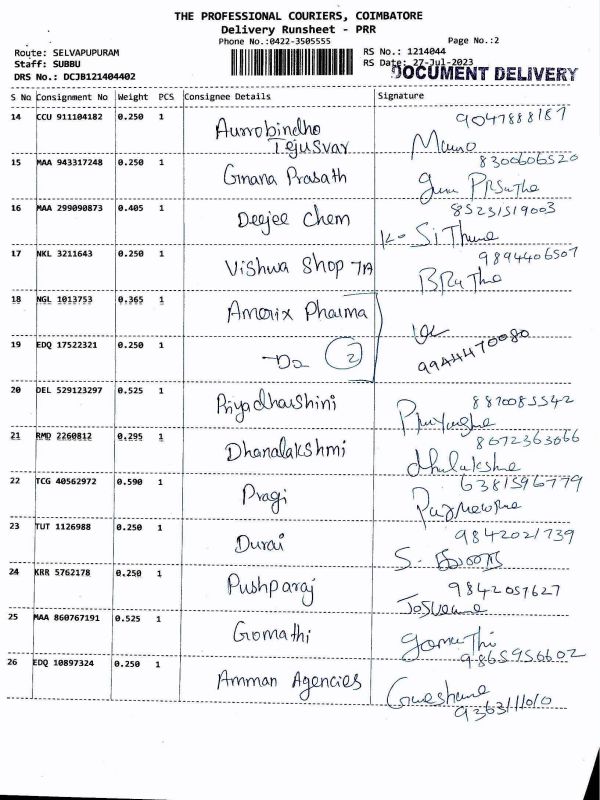 THE PROFESSIONAL COURIERS, COIMBATORE
Delivery Runsheet - PRR
Phone No.:0422-3505555 Page No.:2
Route: SELVAPUPURAM RS No.: 1214044
Staff: SUBBU RS Date: 27-Jul-2023
DRS No.: DCJB121404402 DOCUMENT DELIVERY
S No Consignment No Weight PCS Consignee Details Signature
14 CCU 911104182 0.250 1 Aurrobindho 9047888187
Tejusvar
15 MAA 943317248 0.250 1 Gnana Prasath 8300606520
16 MAA 299090873 0.405 1 Deejee Chem 85231519003
17 NKL 3211643 0.250 1 Vishwa Shop 7A 9894406507
18 NGL 1013753 0.365 1 Amorix Pharma
19 EDQ 17522321 0.250 1 -Do 2 9944470080
20 DEL 529123297 0.525 1 Priyadharshini 8870085542
21 RMD 2260812 0.295 1 Dhanalakshmi 8072363066
22 TCG 40562972 0.590 1 Pragi 6381596779
23 TUT 1126988 0.250 1 Durai 9842021739
24 KRR 5762178 0.250 1 Pushparaj 9842057627
25 MAA 860767191 0.525 1 Gomathi gomathi
9865956602
26 EDQ 10897324 0.250 1 Amman Agencies
9363111010